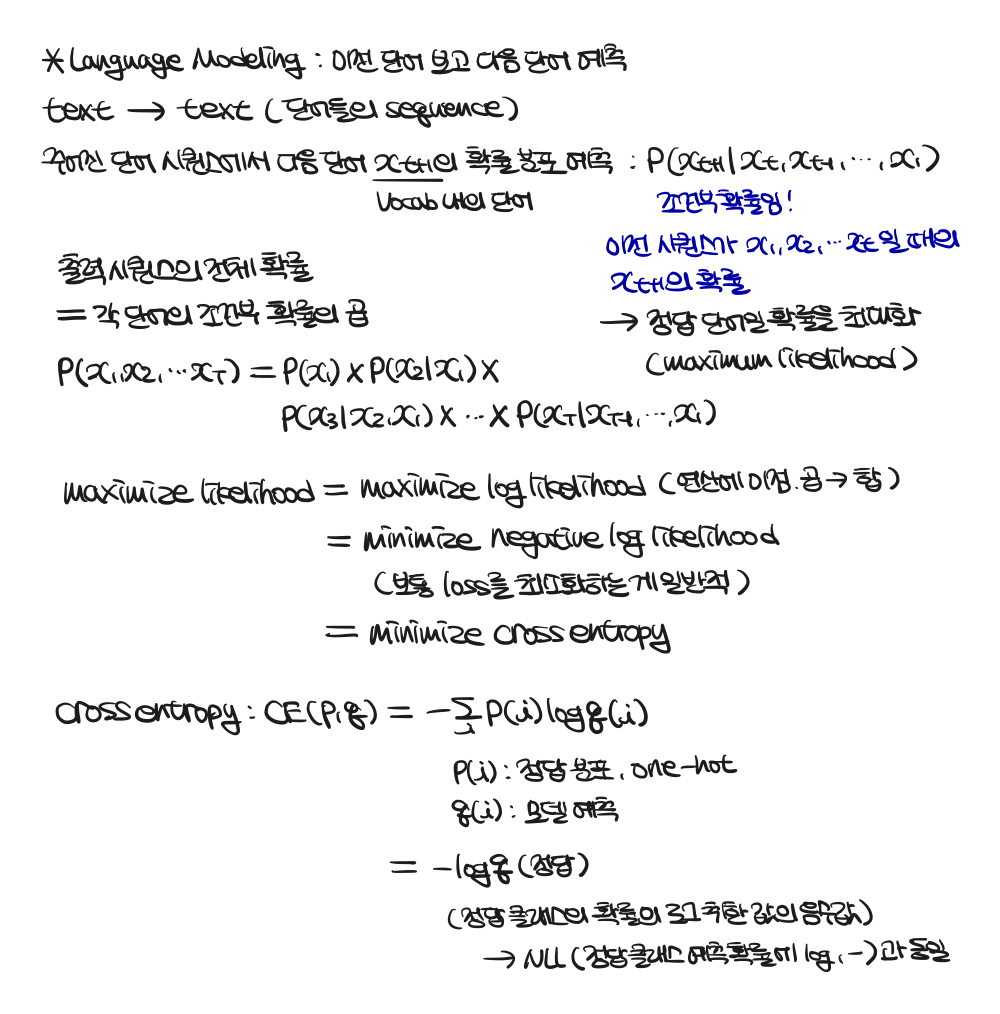 * Language Modeling : 이전 단어 보고 다음 단어 예측
text → text (단어들의 sequence)
주어진 단어 시퀀스에서 다음 단어 x_{t+1}의 확률 분포 예측 : P(x_{t+1}|x_t, x_{t-1}, ..., x_1)
Vocab 내의 단어
조건부 확률임!
이전 시퀀스가 x_1, x_2, ... x_t일 때의
x_{t+1}의 확률
→ 정답 단어일 확률을 최대화
(maximum likelihood)
출력 시퀀스의 전체 확률
= 각 단어의 조건부 확률의 곱
P(x_1, x_2, ... x_T) = P(x_1) × P(x_2|x_1) ×
P(x_3|x_2, x_1) × ... × P(x_T|x_{T-1}, ..., x_1)
maximize likelihood = maximize log likelihood (연산에 이점. 곱 → 합)
= minimize negative log likelihood
(보통 loss를 최소화하는 게 일반적)
= minimize cross entropy
cross entropy : CE(P, q) = -∑_i P(i) log q(i)
P(i) : 정답 분포, one-hot
q(i) : 모델 예측
= -log q (정답)
(정답 클래스의 확률의 로그 취한 값의 음수값)
→ NLL (정답 클래스 예측 확률에 log, -)과 동일